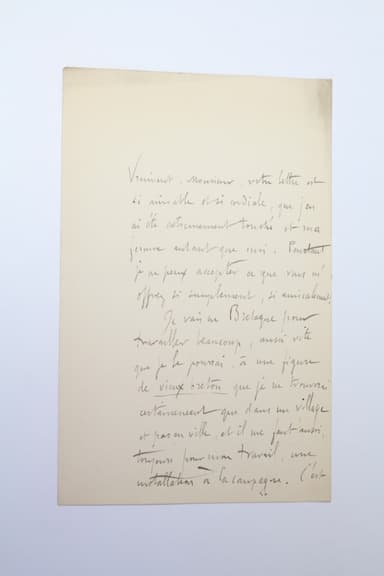 Vraiment, Monsieur, votre lettre est
si aimable et si cordiale, que j'en
ai été extrêmement touché et ma
femme autant que moi. Pourtant
je ne peux accepter ce que vous m'
offrez si simplement, si amicalement.
Je vais en Bretagne pour
travailler beaucoup, aussi vite
que je le pourrai, à une figure
de vieux breton que je ne trouverai
certainement que dans un village
et pas en ville et il me faut aussi,
toujours pour mon travail, une
installation à la campagne. C'est